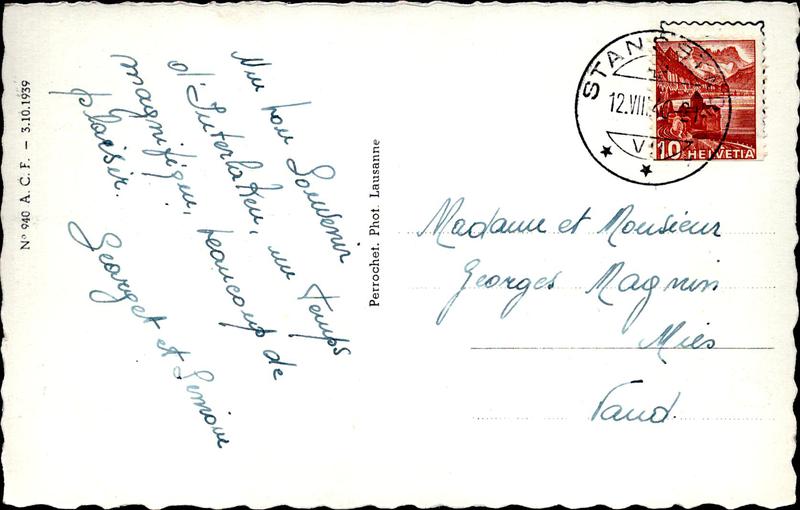 Nº 940 A. C. F. — 3.10.1939
Un bon Souvenir
d'Interlaken, un temps
magnifique, beaucoup de
plaisir.
Georget et Simone
Perrochet. Phot. Lausanne
12.VII.
10 HELVETIA
Madame et Monsieur
Georges Magnin
Mies
Vaud.